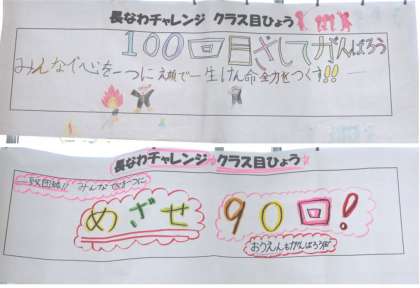 長なわチャレンジ クラス目ひょう
100回目ざしてがんばろう
みんなで心を一つに 笑顔で一生けん命全力をつくす!!
長なわチャレンジ クラス目ひょう
一致団結!! みんなで1つに
めざせ 90回!
おうえんもがんばろう